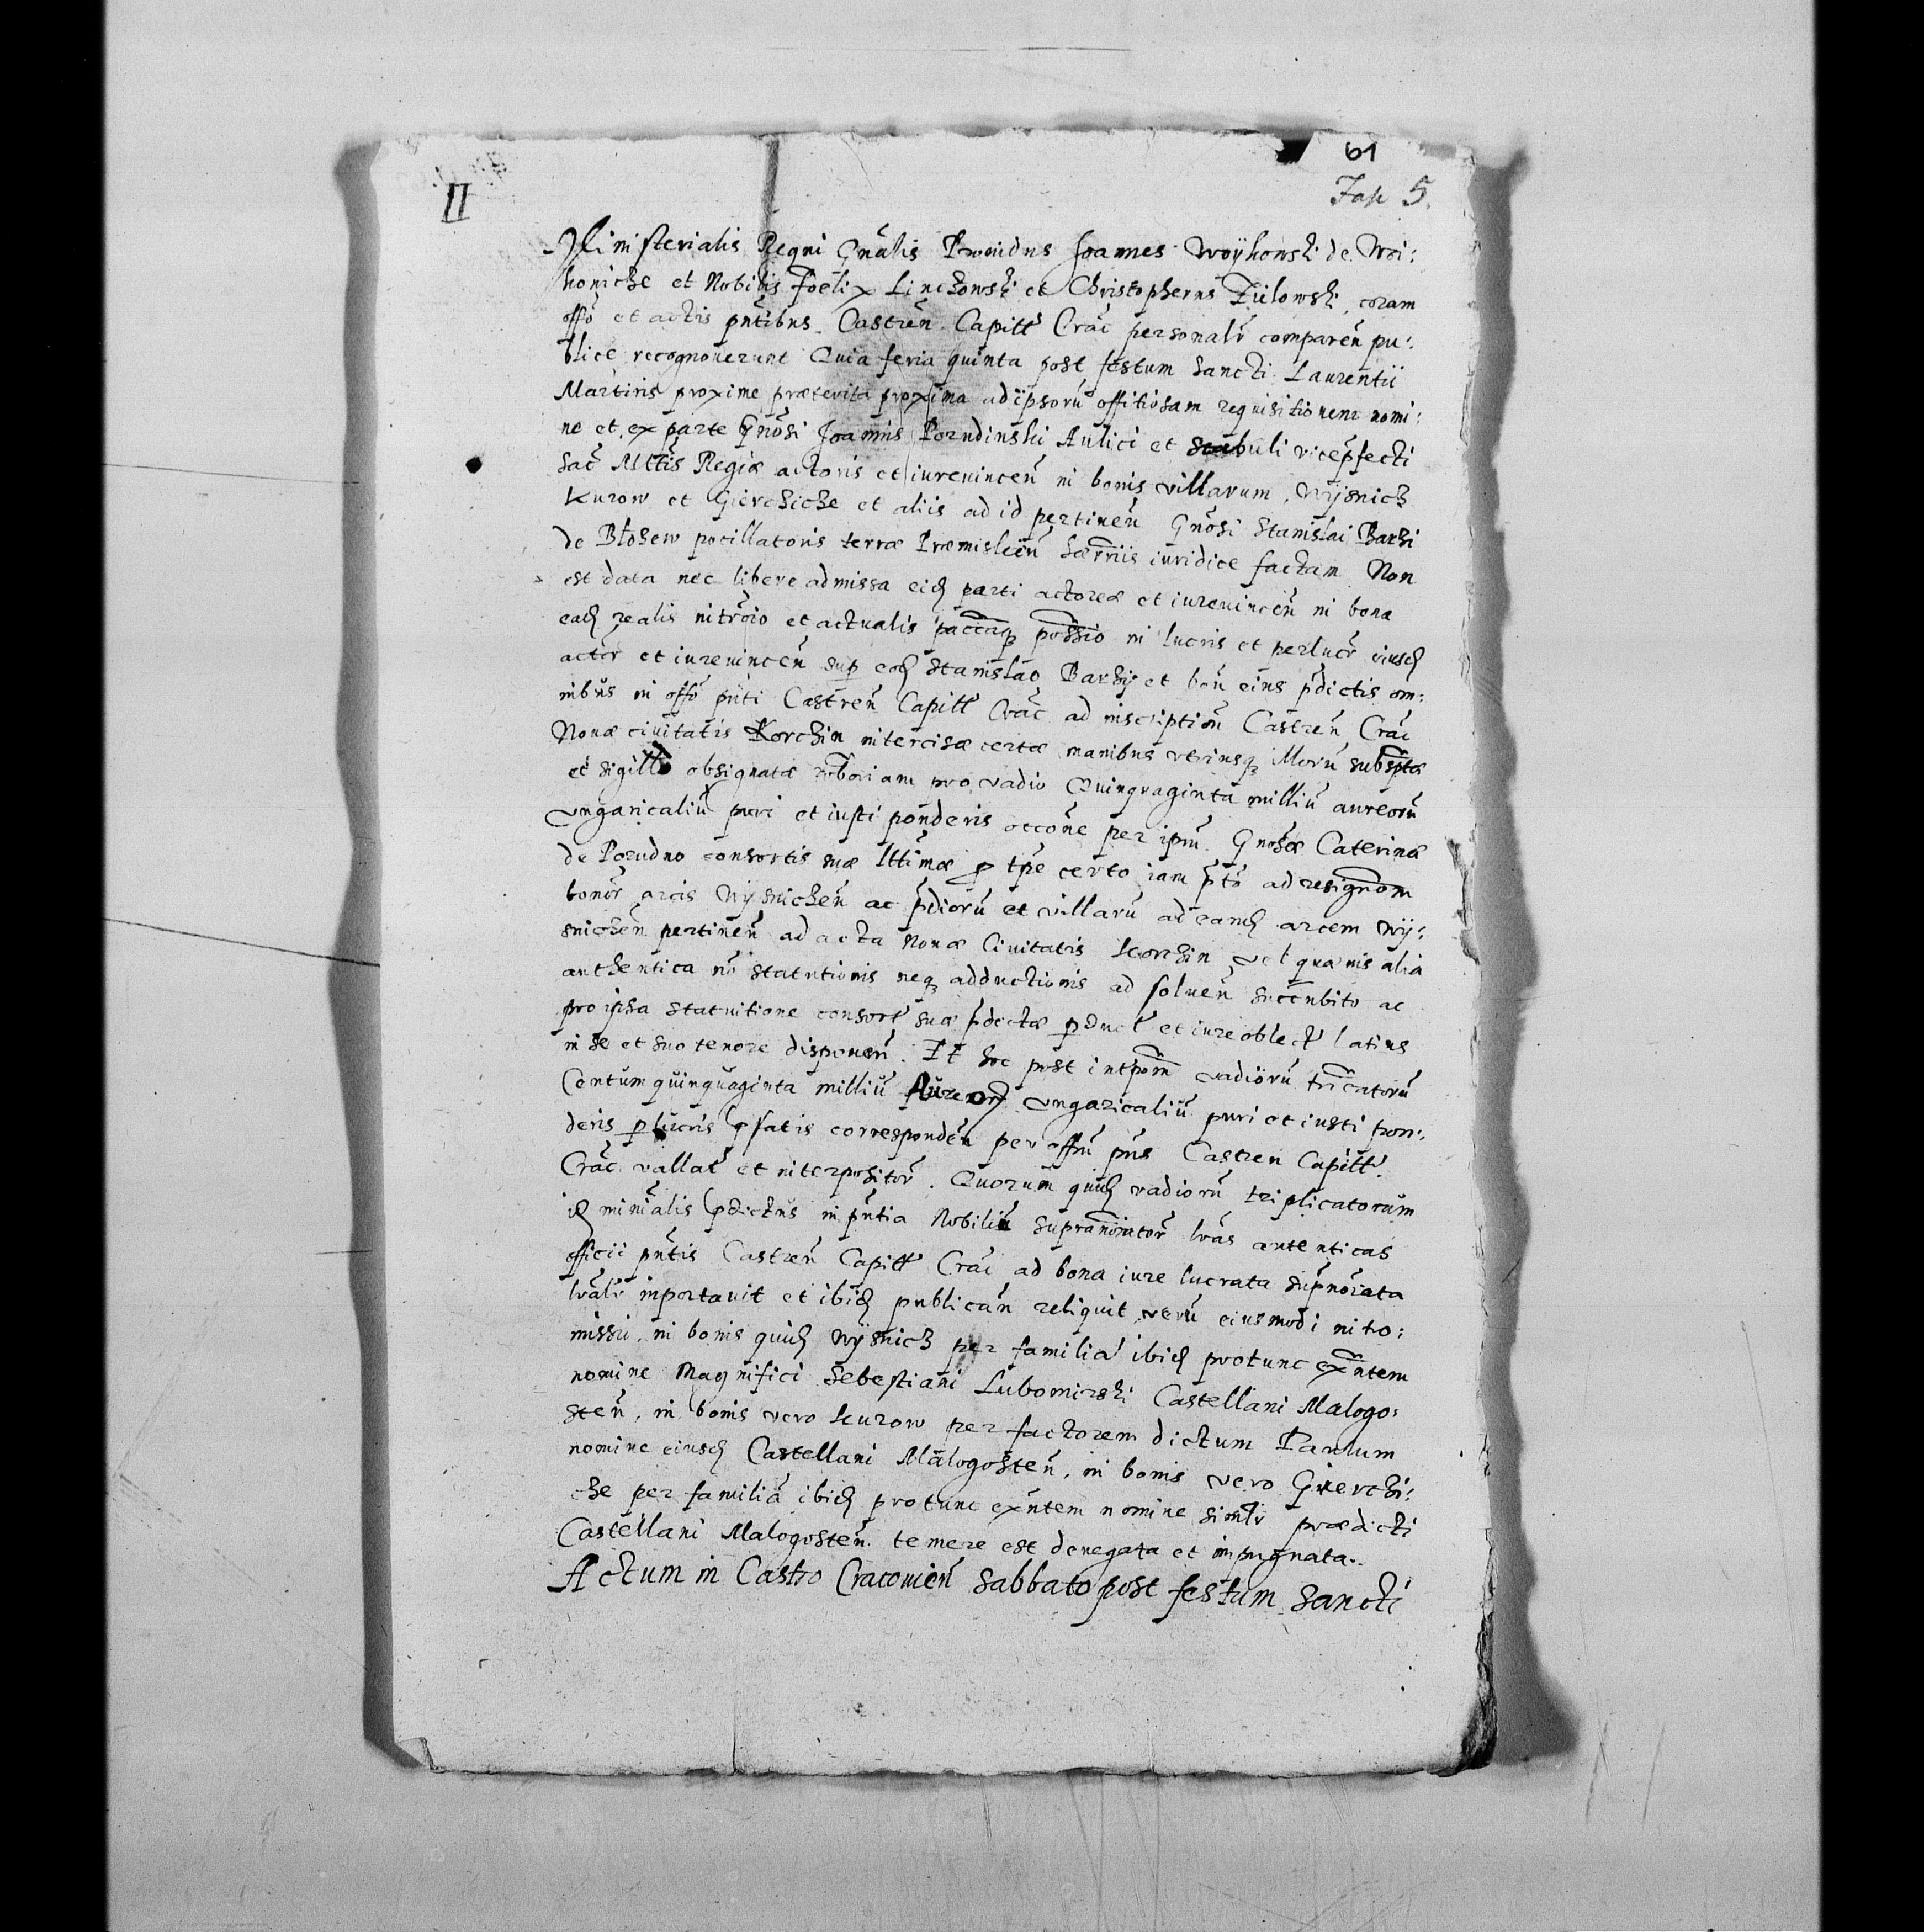 61
II
Fas 5.
Ministerialis Regni Gnālis Providus Joannes Woÿkowski de Woi:
kowicze et Nobilis Foelix Linczowski et Christopherus Zulowski, coram
offo et actis pntibus Castren Capitl Crac personalr comparen pu:
blice recognoverunt Quia feria quinta post festum Sancti Laurentii
Martiris proxime præterita proxima ad ipsorū offitiosam requisitionem nomi:
ne et ex parte Gnosi Joannis Porudinski Aulici et stabuli vicepfecti
Sac Mttis Regiæ actoris et iurevincen in bonis villarum, Wÿsnicz
Kurow et Gierczicze et aliis ad id pertinen Gnosi Stanislai Barzi
de Błozew pocillatoris terræ Præmislien hærriis iuridice factam Non
est data nec libere admissa eid parti actoreæ et iurevincen in bona
ead realis intrōio et actualis pacctaq possio in lucris et perlucr eiusd
actor et iurevincen sup eod Stanislao Barzÿ et bon eius pdictis om:
nibus in offo pnti Castren Capitl Crac ad inscription Castren Crac
Novæ civitatis Korczin intercisæ certæ manibus utriusq illorū subsptæ
et sigillo obsignatæ roboriam pro vadio Quinquaginta milliū aureorū
ungaricaliū puri et iusti ponderis occōne per ipm Gnosæ Caterinæ
de Porudno consortis suæ lttimæ p tpe certo iam pto ad resignōm
bonor arcis Wÿsnichen ac pdiorū et villarū ad eamd arcem Wÿ:
snichen pertinen ad acta Novæ Civitatis Korczin vel quævis alia
authentica nō statutionis neq adductionis ad solven succubito ac
pro ipsa statuitione consort suæ pdictæ pduct et iure oblect latius
in se et suo tenore disponen. Et hoc post intpōm vadiorū trircatorū
Centum quinquaginta milliū Aureor ungaricaliū puri et iusti pon:
deris plucris psatis corresponden per offm pns Castren Capitl
Crac vallat et interpositor. Quorum quid vadiorū triplicatorum
id minialis pdictus in pntia Nobiliū supranoiator lras autenticas
officii pntis Castren Capitl Crac ad bona iure lucrata supnoiata
lralr inportavit et ibid publican reliquit, verū eiusmodi intro:
missū, in bonis quid Wÿsnicz per familiā ibid protunc exntem
nomine Magnifici Sebestiani Lubomirski Castellani Malogo:
sten, in bonis vero Kurow per factorem dictum Paulum
nomine eiusd Castellani Malogosten, in bonis vero Gierczi:
cze per familiā ibid protunc exntem nomine similr prædicti
Castellani Malogosten temere est denegata et impugnata.
Actum in Castro Cracovien Sabbato post festum Sancti